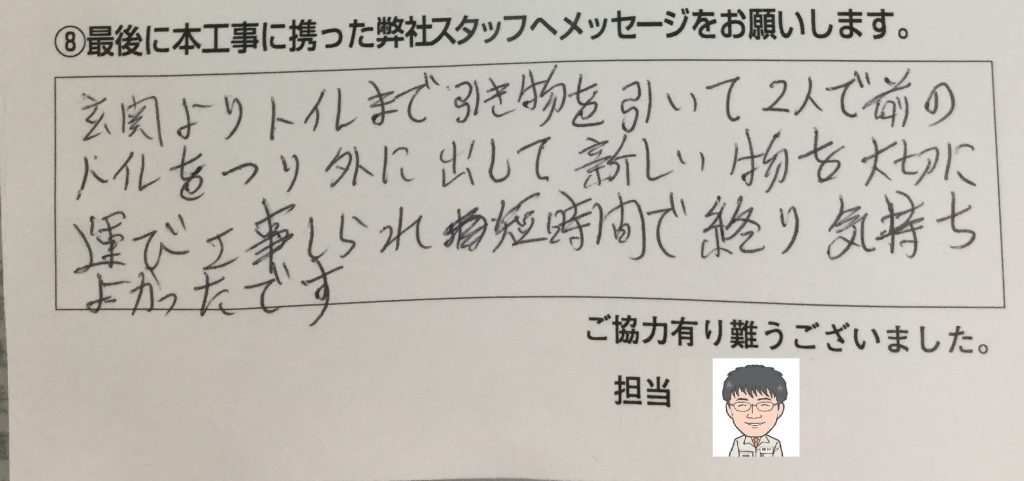 ⑧最後に本工事に携った弊社スタッフへメッセージをお願いします。
玄関よりトイレまで引き物を引いて2人で前の
トイレをつり外に出して新しい物を大切に
運び工事しられ短時間で終り気持ち
よかったです
ご協力有り難うございました。
担当